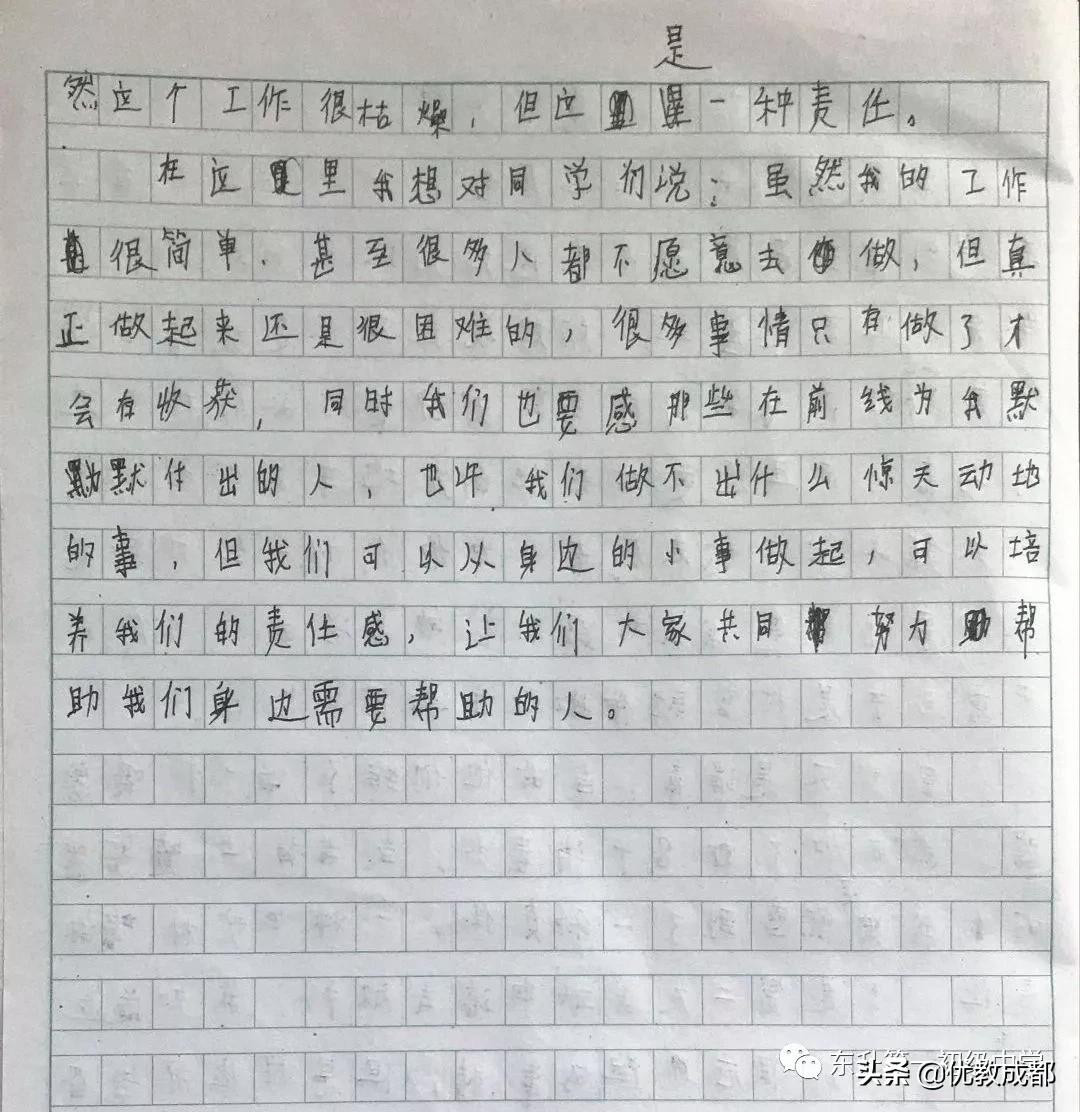 是
然这个工作很枯燥，但这是一种责任。
在这里我想对同学们说：虽然我的工作
很简单、甚至很多人都不愿意去做，但真
正做起来还是很困难的，很多事情只有做了才
会有收获，同时我们也要感那些在前线为我默
默默付出的人，也许我们做不出什么惊天动地
的事，但我们可以从身边的小事做起，可以培
养我们的责任感，让我们大家共同努力帮
助我们身边需要帮助的人。
东升第一初级中学
头条 @优教成都